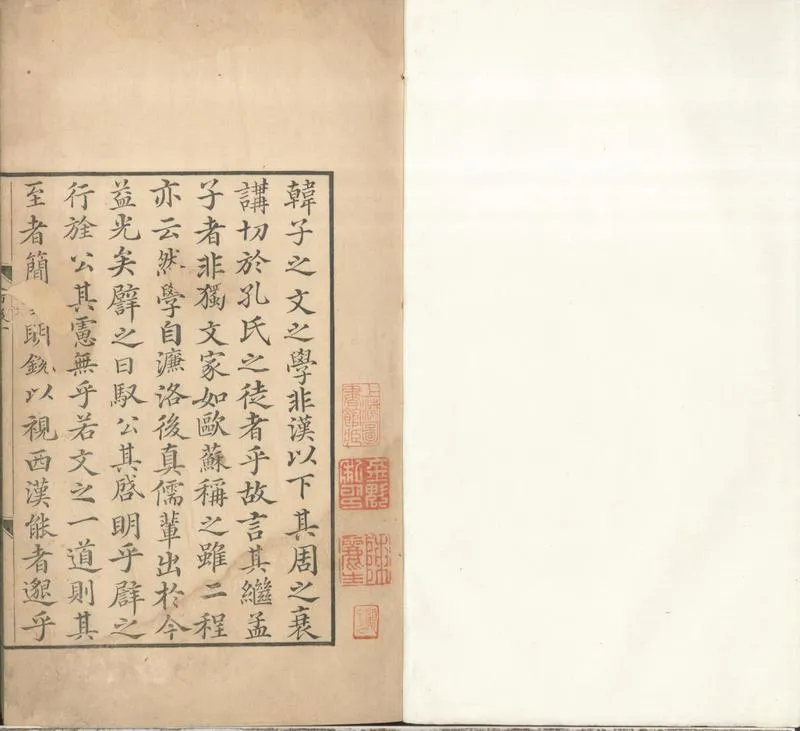 韓子之文之學非漢以下其周之衰
講切於孔氏之徒者乎故言其繼孟
子者非獨文家如歐蘇稱之雖二程
亦云然學自濂洛後真儒輩出於今
益光矣譬之日馭公其啓明乎辟之
行旅公其憲無乎若文之一道則其
至者簡明銳以視西漢能者邈乎
上海圖書館藏